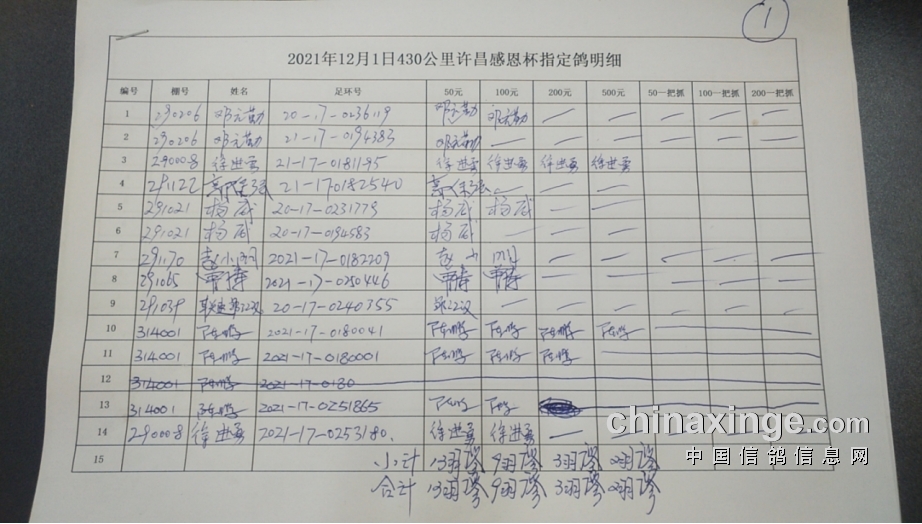 1
2021年12月1日430公里许昌感恩杯指定鸽明细
编号 棚号 姓名 足环号 50元 100元 200元 500元 50一把抓 100一把抓 200一把抓
1 290206 邓元勤 20-17-0236119 邓元勤 邓元勤 — — — — —
2 290206 邓元勤 21-17-0194383 邓元勤 — — — — — —
3 290008 徐进勇 21-17-0181195 徐进勇 徐进勇 徐进勇 徐进勇
4 291122 21-170182540 — — —
5 291021 杨威 20-17-0231779 杨威 杨威 — —
6 291021 杨威 20-17-0194583 杨威 — — —
7 291170 2021-17-0182209 — — — — —
8 291065 曹持 2021-17-0250446 曹持 曹持 — — — — —
9 291039 20-17-0240355 — — — — — —
10 314001 陈鹏 2021-17-0180041 陈鹏 陈鹏 陈鹏 陈鹏
11 314001 陈鹏 2021-17-0180001 陈鹏 陈鹏 陈鹏
12 314001 陈鹏 2021-17-0180
13 314001 陈鹏 2021-17-0251865 陈鹏 陈鹏
14 290008 徐进勇 2021-17-0253180. 徐进勇 徐进勇 — — — — —
15 小计 13羽 9羽 3羽 2羽
合计 13羽 9羽 3羽 2羽
chinaxinge.com
中国信鸽信息网